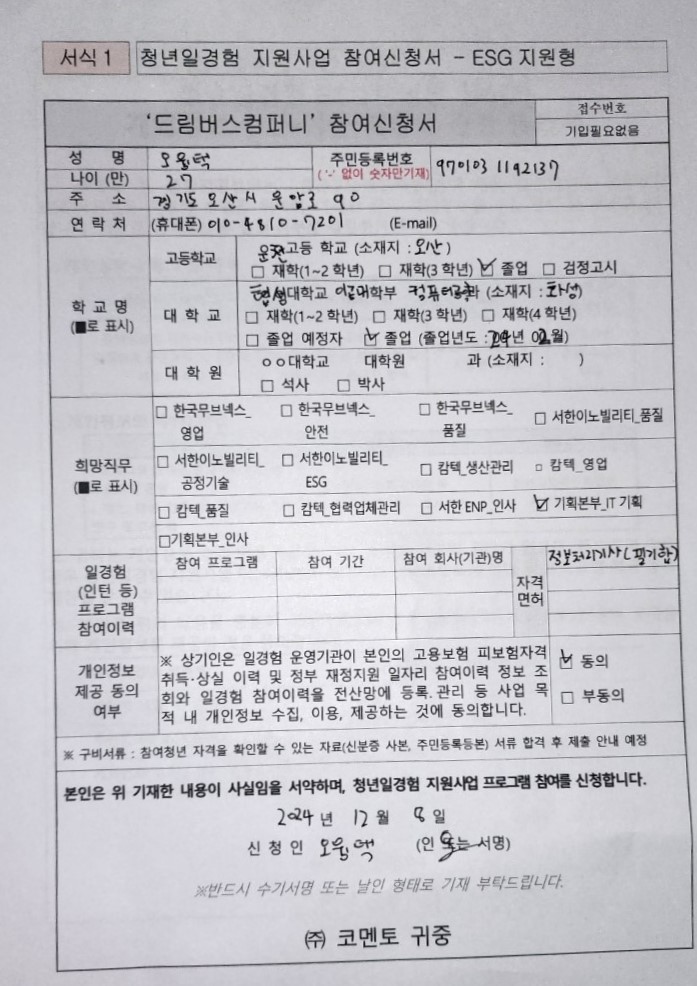 서식 1 청년일경험 지원사업 참여신청서 - ESG 지원형
'드림버스컴퍼니' 참여신청서
접수번호
기입필요없음
성 명
주민등록번호 ('-' 없이 숫자만기재) 970103 1192137
나이 (만) 27
주 소 경기도 오산시 운암로 90
연 락 처 (휴대폰) 010-4810-7201 (E-mail)
학 교 명 (■로 표시)
고등학교 고등 학교 (소재지 : 오산)
□ 재학(1~2 학년) □ 재학(3 학년) ☑ 졸업 □ 검정고시
대 학 교 협성대학교 이공대학부 컴퓨터공학과 (소재지 : 화성)
□ 재학(1~2 학년) □ 재학(3 학년) □ 재학(4 학년)
□ 졸업 예정자 ☑ 졸업 (졸업년도 : 24년 02월)
대 학 원 ㅇㅇ대학교 대학원 과 (소재지 : )
□ 석사 □ 박사
희망직무 (■로 표시)
□ 한국무브넥스_영업 □ 한국무브넥스_안전 □ 한국무브넥스_품질 □ 서한이노빌리티_품질
□ 서한이노빌리티_공정기술 □ 서한이노빌리티_ESG □ 캄텍_생산관리 □ 캄텍_영업
□ 캄텍_품질 □ 캄텍_협력업체관리 □ 서한 ENP_인사 ☑ 기획본부_IT 기획
□기획본부_인사
일경험 (인턴 등) 프로그램 참여이력
참여 프로그램 참여 기간 참여 회사(기관)명
자격 면허 정보처리기사(필기합)
개인정보 제공 동의 여부
※ 상기인은 일경험 운영기관이 본인의 고용보험 피보험자격
취득·상실 이력 및 정부 재정지원 일자리 참여이력 정보 조
회와 일경험 참여이력을 전산망에 등록.관리 등 사업 목
적 내 개인정보 수집, 이용, 제공하는 것에 동의합니다.
☑ 동의
□ 부동의
※ 구비서류 : 참여청년 자격을 확인할 수 있는 자료(신분증 사본, 주민등록등본) 서류 합격 후 제출 안내 예정
본인은 위 기재한 내용이 사실임을 서약하며, 청년일경험 지원사업 프로그램 참여를 신청합니다.
2024 년 12 월 8 일
신 청 인 (인 또는 서명)
※반드시 수기서명 또는 날인 형태로 기재 부탁드립니다.
㈜ 코멘토 귀중